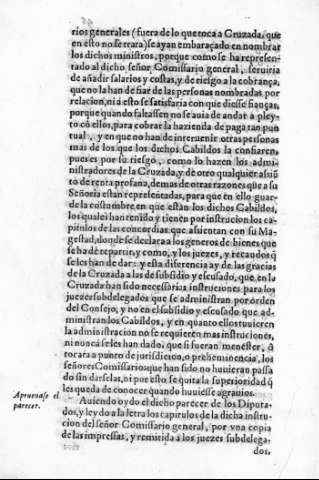 rios generales (fuera de lo que toca a Cruzada, que
en esto no se trata) se ayan embaraçado en nombrar
los dichos ministros, porque como se ha represen-
tado al dicho señor Comissario general, seruiria
de añadir salarios y costas, y de riesgo a la cobrança,
que no la han de fiar de las personas nombradas por
relacion, ni a esto se satisfaria con que diesse fianças,
porque quando faltassen no se auia de andar a pley-
to cõ ellos, para cobrar la hazienda de paga tan pun
tual, y en que no han de interuenir otras personas
mas de los que los dichos Cabildos la confiaren,
pues es por su riesgo, como lo hazen los admi-
nistradores de la Cruzada, y de otro qualquier assiẽ
to de renta profana, demas de otras razones que a su
Señoria estan representadas, para que en ello guar-
de la costumbre en que estàn los dichos Cabildos,
los quales han tenido y tienen por instrucion los ca-
pitulos de las concordias que assientan con su Ma-
gestad, donde se declara los generos de bienes que
se ha de repartir, y como, y los juezes, y recaudos q̃
se les han de dar: y esta diferencia ay de las gracias
de la Cruzada a las de subsidio y escusado, que en la
Cruzada han sido necessarias instruciones para los
juezes subdelegados que se administran por orden
del Consejo, y no en el subsidio y escusado que ad-
ministran los Cabildos, y en quanto ellos tuuieren
la administracion no se requieren mas instruciones,
ni nunca se les han dado, que si fueran menester, ò
tocara a punto de jurisdicion, o preheminencia, los
señores Comissarios que han sido no huuieran passa
do sin darselas, ni por esto se quita la superioridad q̃
les queda de conocer quando huuiesse agrauios.
Aprueuase el
parecer.
Auiendo oydo el dicho parecer de los Diputa-
dos, y leydo a la letra los capitulos de la dicha instru-
cion del señor Comissario general, por vna copia
de las impressas, y remitida a los juezes subdelega-
dos,